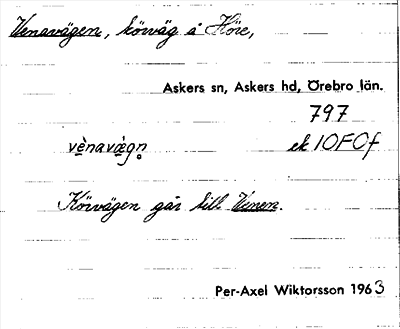 Venavägen, körväg å Höre,
Askers sn, Askers hd, Örebro län.
797
vènavæ̀gn̥ ek 10F0f
Körvägen går till Venen.
Per-Axel Wiktorsson 1963